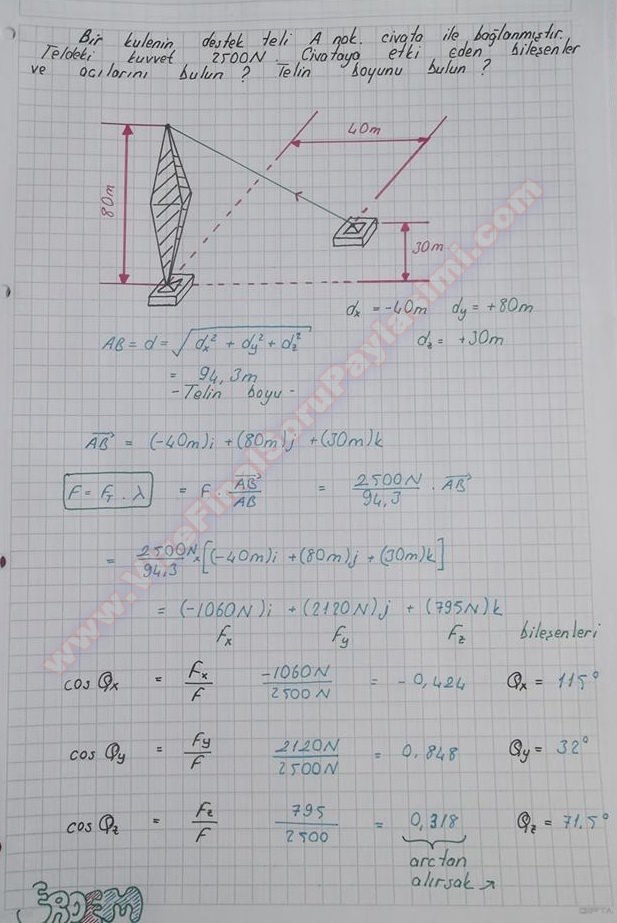 Bir kulenin destek teli A nok. civata ile bağlanmıştır.
Teldeki kuvvet 2500N. Civataya etki eden bileşenler
ve açılarını bulun ? Telin boyunu bulun ?
40m
80m
30m
dx = -40m dy = +80m
dz = +30m
AB = d = √(dx² + dy² + dz²)
= 94,3m
- Telin boyu -
AB = (-40m)i + (80m)j + (30m)k
F = FT . λ = F . AB/AB = 2500N/94,3 . AB
= 2500N/94,3 x [(-40m)i + (80m)j + (30m)k]
= (-1060N)i + (2120N)j + (795N)k
Fx Fy Fz bileşenleri
cos Qx = Fx/F -1060N/2500N = -0,424 Qx = 115°
cos Qy = Fy/F 2120N/2500N = 0,848 Qy = 32°
cos Qz = Fz/F 795/2500 = 0,318 Qz = 71,5°
arctan
alırsak
ERDEM
www.VizeFinalSoruPaylasimi.com